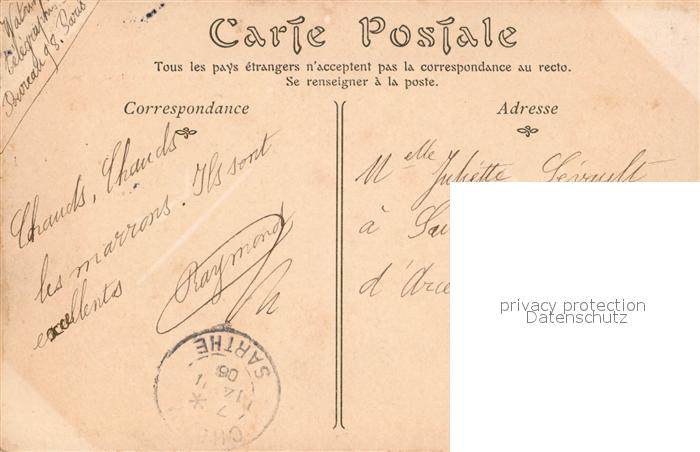 télégraphi
Bureau 98. Paris
Carte Postale
Tous les pays étrangers n'acceptent pas la correspondance au recto.
Se renseigner à la poste.
Correspondance
Chauds, Chauds
les marrons. Ils sont
excellents
Raymond
Adresse
Melle Juliette
à
d'Arce
privacy protection
Datenschutz
SARTHE